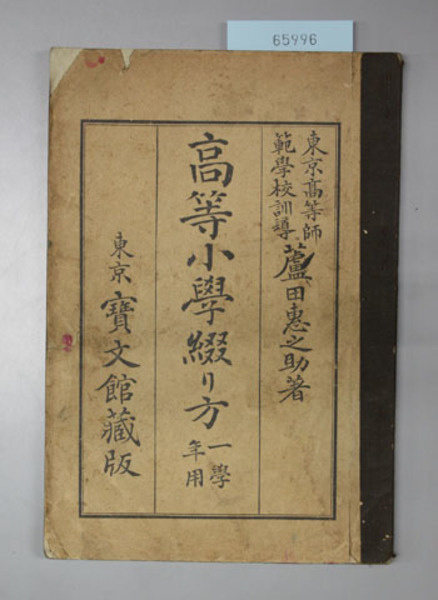 65996
東京高等師
範學校訓導
蘆田惠之助著
高等小學綴り方
一學
年用
東京 寶文館藏版